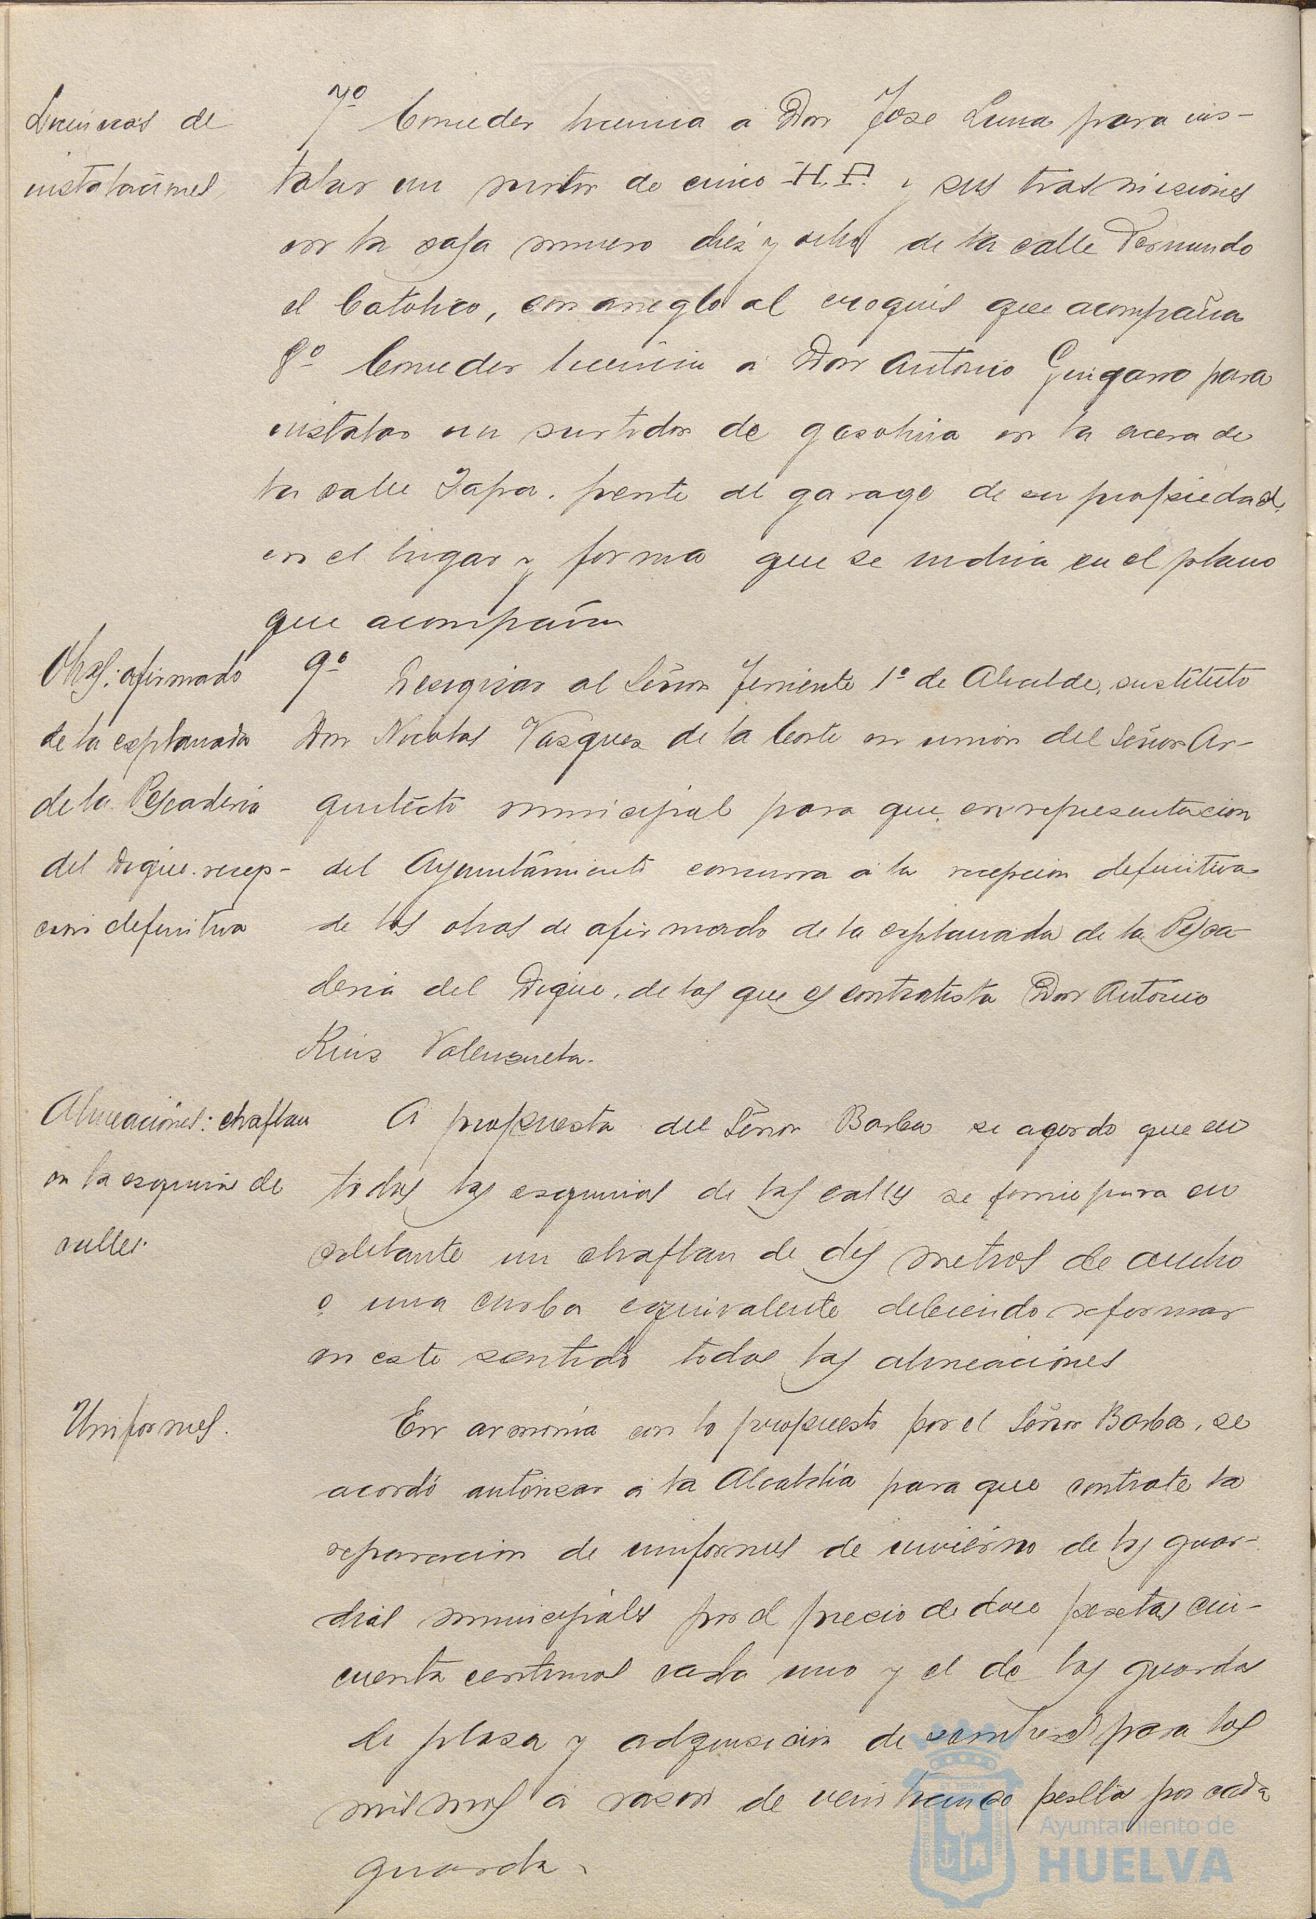 Licencias de
instalaciones
7º Conceder licencia a Don Jose Luna para ins-
talar un motor de cinco H.P. y sus trasmisiones
en la casa numero diez y ocho de la calle Fernando
el Catolico, con arreglo al croquis que acompaña
8º Conceder licencia a Don Antonio Guijarro para
instalar un surtidor de gasolina en la acera de
la calle Zafra, frente al garage de su propiedad,
en el lugar y forma que se indica en el plano
que acompaña
Obras: afirmado
de la explanada
de la Pescaderia
del Dique. recep-
cion definitiva
9º Designar al Señor Teniente 1º de Alcalde, sustituto
Don Nicolas Vasquez de la Corte en union del Señor Ar-
quitecto municipal para que en representacion
del Ayuntamiento concurra a la recepcion definitiva
de las obras de afirmado de la explanada de la Pesca-
deria del Dique, de las que es contratista Don Antonio
Ruiz Valenzuela.
Alineaciones: chaflan
en la esquina de
calles.
A propuesta del Señor Barba se acordo que en
todas las esquinas de las calles se forme para en
adelante un chaflan de dos metros de ancho
o una curba equivalente debiendo reformar
en este sentido todas las alineaciones
Uniformes.
En armonia con lo propuesto por el Señor Barba, se
acordó autorizar a la Alcaldia para que contrate la
reparacion de uniformes de invierno de los guar-
dias municipales por el precio de doce pesetas cin-
cuenta centimos cada uno y el de los guardas
de plaza y adquisicion de sombreros para los
mismos a razon de veinticinco pesetas por cada
guarda.
Ayuntamiento de
HUELVA